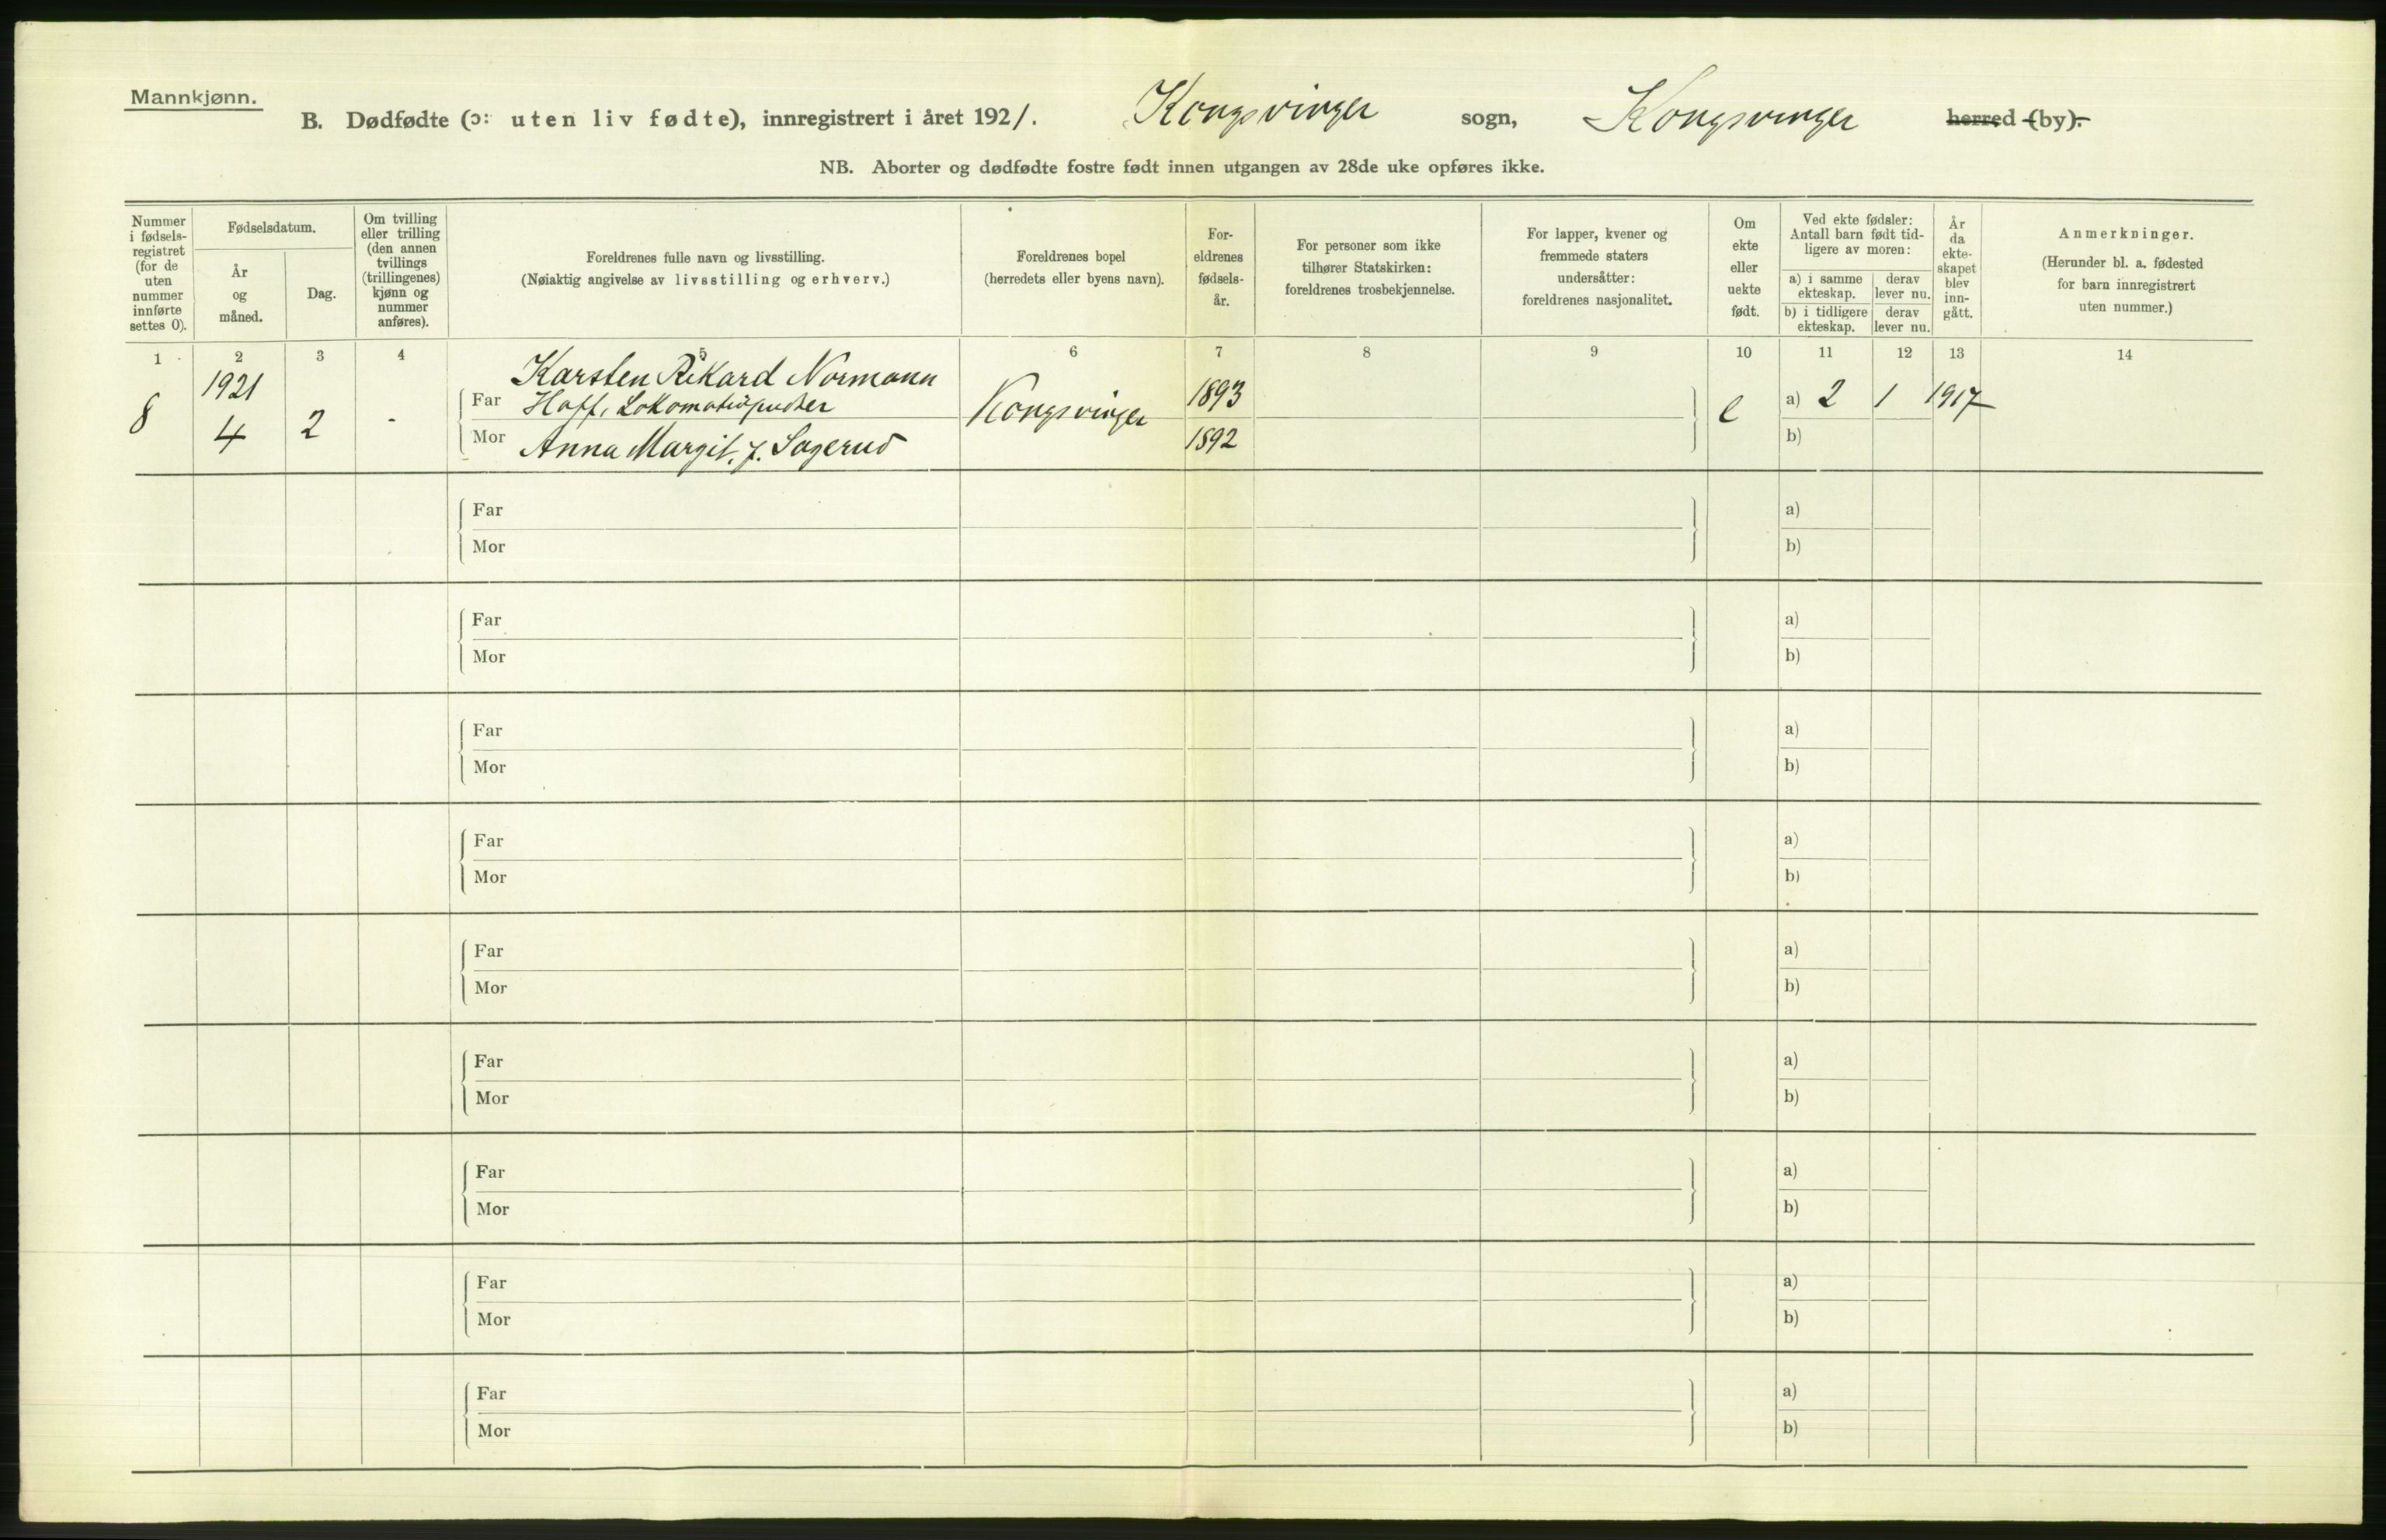 Mannkjønn.
B. Dødfødte (ɔ: uten liv fødte), innregistrert i året 1921. Kongsvinger sogn, Kongsvinger herred (by).
NB. Aborter og dødfødte fostre født innen utgangen av 28de uke opføres ikke.
Nummer i fødsels-registret (for de uten nummer innførte settes 0).
Fødselsdatum.
År og måned.
Dag.
Om tvilling eller trilling (den annen tvillings (trillingenes) kjønn og nummer anføres).
Foreldrenes fulle navn og livsstilling.
(Nøiaktig angivelse av livsstilling og erhverv.)
Foreldrenes bopel
(herredets eller byens navn).
For-eldrenes fødsels-år.
For personer som ikke tilhører Statskirken: foreldrenes trosbekjennelse.
For lapper, kvener og fremmede staters undersåtter: foreldrenes nasjonalitet.
Om ekte eller uekte født.
Ved ekte fødsler: Antall barn født tid-ligere av moren:
a) i samme ekteskap. derav lever nu.
b) i tidligere ekteskap. derav lever nu.
År da ekte-skapet blev inn-gått.
Anmerkninger.
(Herunder bl. a. fødested for barn innregistrert uten nummer.)
1 2 3 4 5 6 7 8 9 10 11 12 13 14
1921 Karsten Rikard Normann
8 4 2 - Far Hoff, Lokomotivpudser Kongsvinger 1893 e a) 2 1 1917
Mor Anna Margit, f. Sagerud 1892 b)
Far a)
Mor b)
Far a)
Mor b)
Far a)
Mor b)
Far a)
Mor b)
Far a)
Mor b)
Far a)
Mor b)
Far a)
Mor b)
Far a)
Mor b)
Far a)
Mor b)